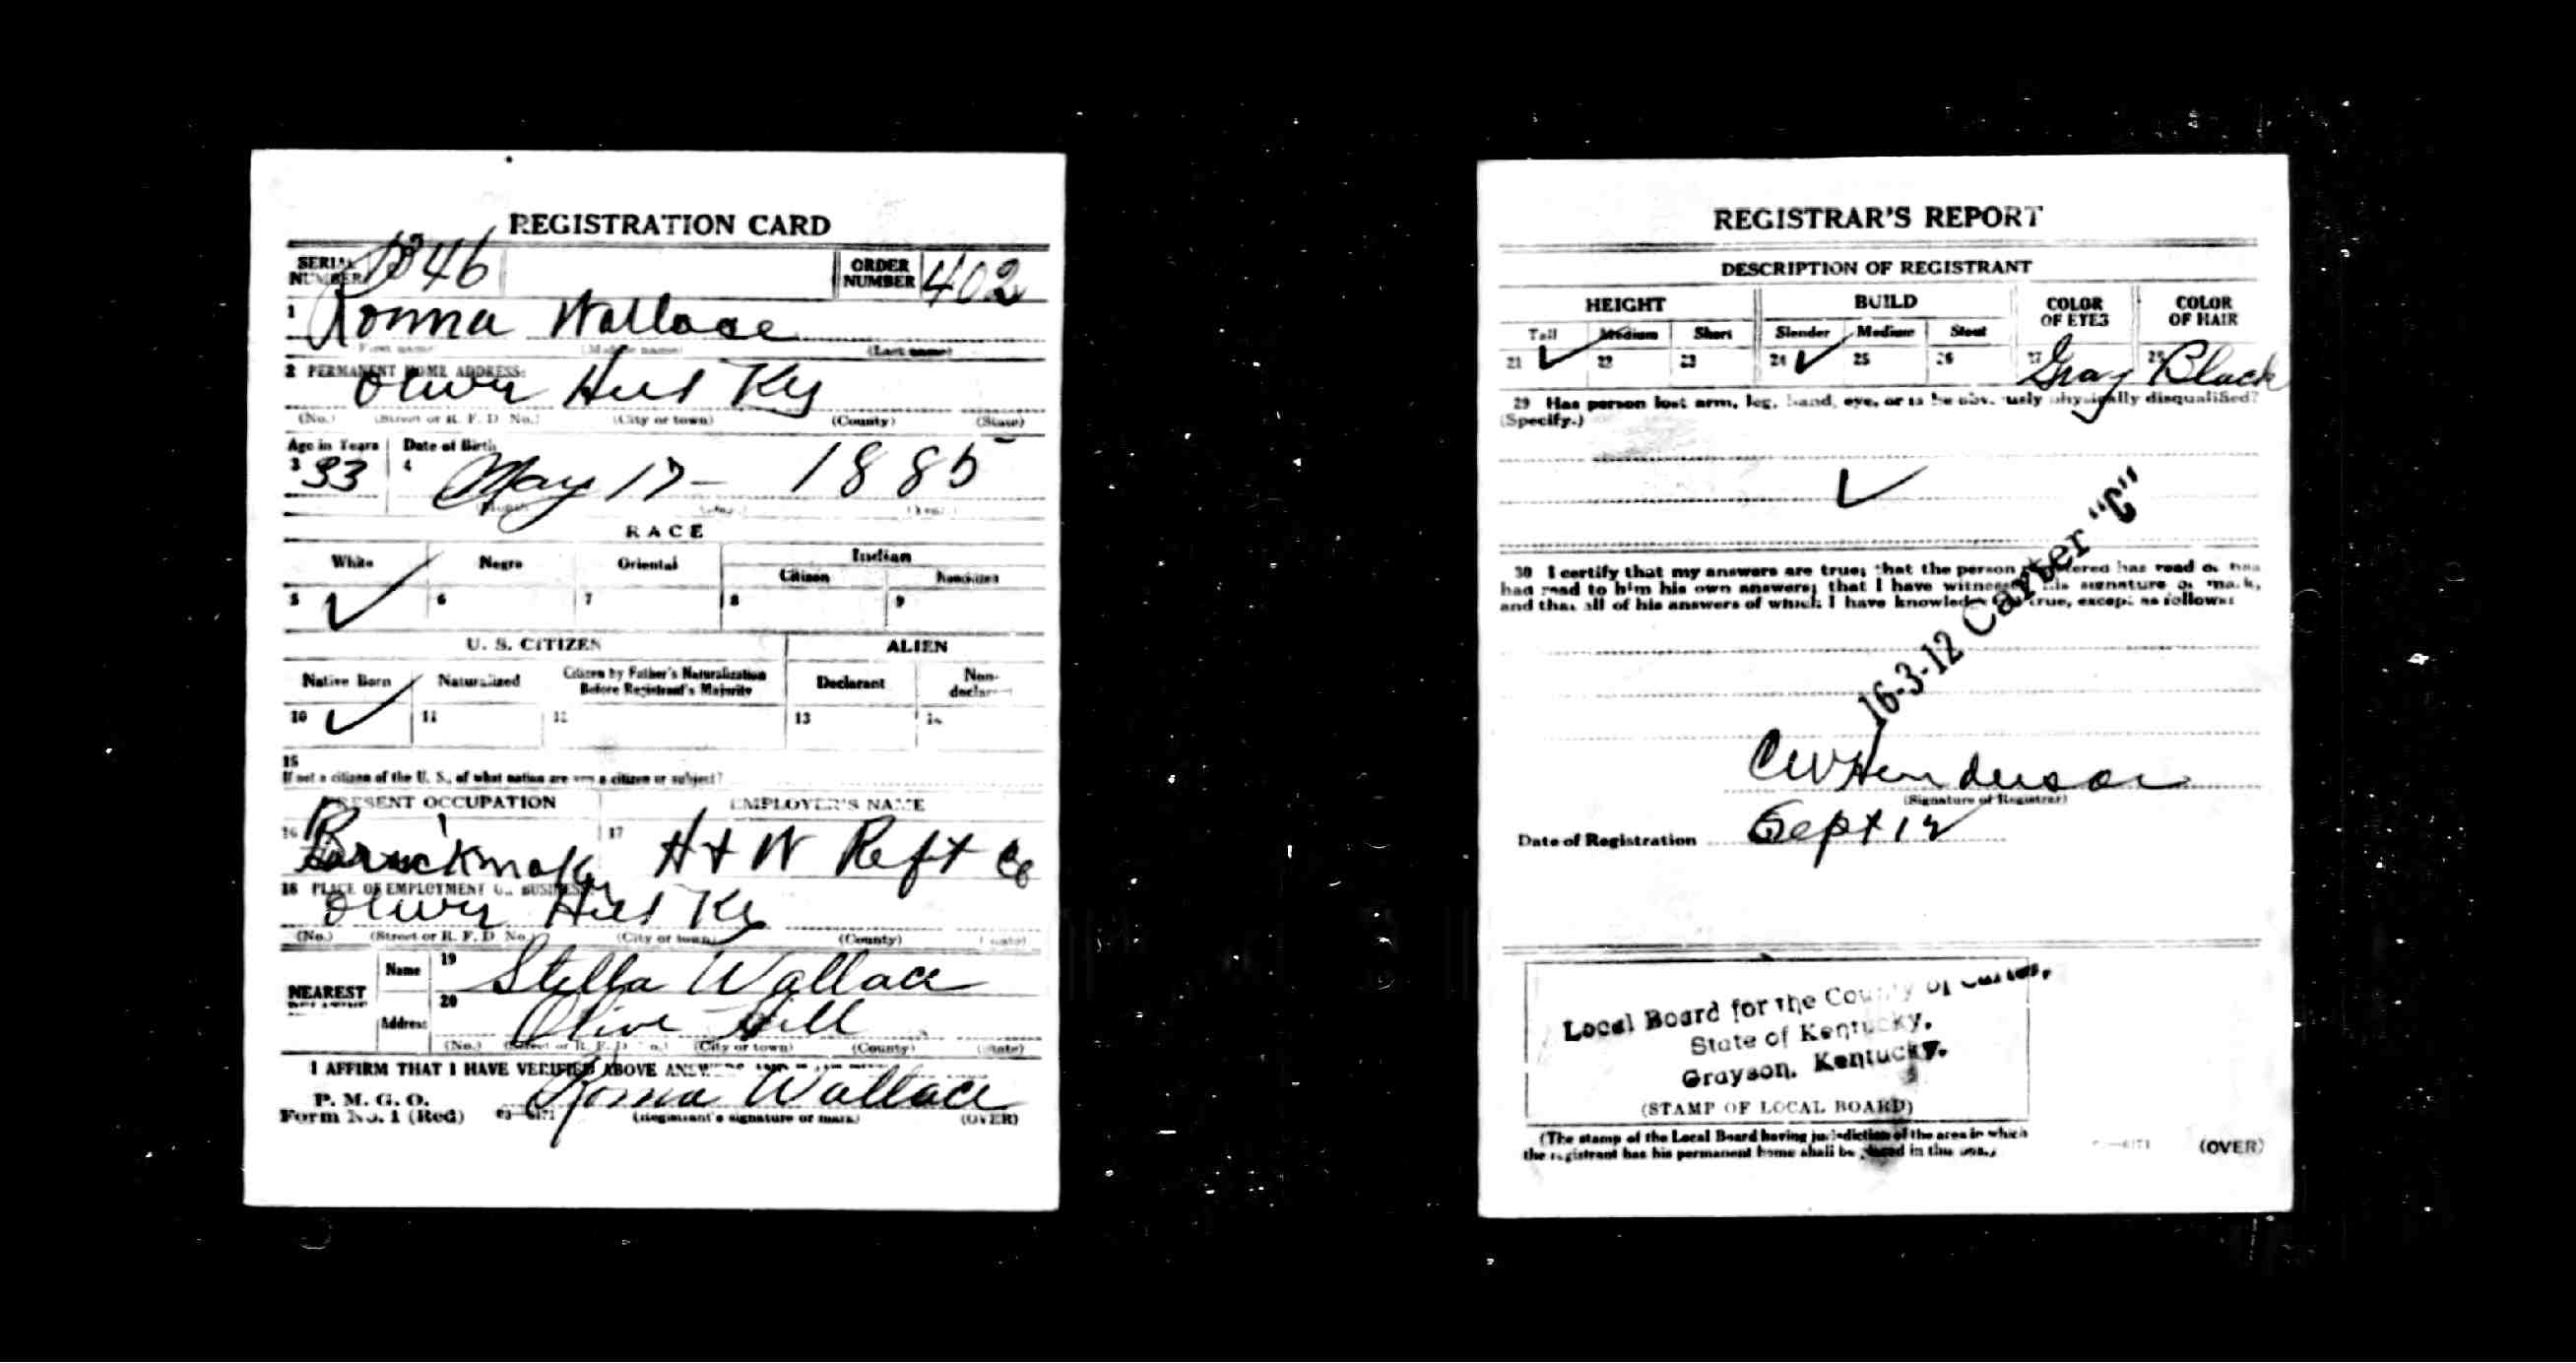 REGISTRATION CARD
SERIAL NUMBER 1346 ORDER NUMBER 402
1 Romma Wallace
(First name) (Middle name) (Last name)
2 PERMANENT HOME ADDRESS:
Oliver Hill Ky
(No.) (Street or R. F. D. No.) (City or town) (County) (State)
Age in Years Date of Birth
3 33 4 May 17 - 1885
(Month) (Day) (Year)
RACE
White Negro Oriental Indian
Citizen Noncitizen
5 ✓ 6 7 8 9
U. S. CITIZEN ALIEN
Native Born Naturalized Citizen by Father's Naturalization Before Registrant's Majority Declarant Non-declarant
10 ✓ 11 12 13 14
15
If not a citizen of the U. S., of what nation are you a citizen or subject?
PRESENT OCCUPATION EMPLOYER'S NAME
16 Brickmaker 17 H + W Reft Co
18 PLACE OF EMPLOYMENT OR BUSINESS:
Oliver Hill Ky
(No.) (Street or R. F. D. No.) (City or town) (County) (State)
NEAREST Name 19 Stella Wallace
Address 20 Olive Hill
(No.) (Street or R. F. D. No.) (City or town) (County) (State)
I AFFIRM THAT I HAVE VERIFIED ABOVE ANSWERS AND
P. M. G. O.
Form No. 1 (Red) 03—6171 Romma Wallace
(Registrant's signature or mark) (OVER)
REGISTRAR'S REPORT
DESCRIPTION OF REGISTRANT
HEIGHT BUILD COLOR OF EYES COLOR OF HAIR
Tall Medium Short Slender Medium Stout
21 ✓ 22 23 24 ✓ 25 26 27 Gray 28 Black
29 Has person lost arm, leg, hand, eye, or is he obviously physically disqualified?
(Specify.)
✓
30 I certify that my answers are true; that the person registered has read or has
had read to him his own answers; that I have witnessed his signature or mark,
and that all of his answers of which I have knowledge are true, except as follows:
16-3-12 Carter "C"
C W Henderson
(Signature of Registrar)
Date of Registration Sept 12
Local Board for the County of Carter,
State of Kentucky,
Grayson, Kentucky.
(STAMP OF LOCAL BOARD)
(The stamp of the Local Board having jurisdiction of the area in which
the registrant has his permanent home shall be placed in this box.)
03—6171 (OVER)